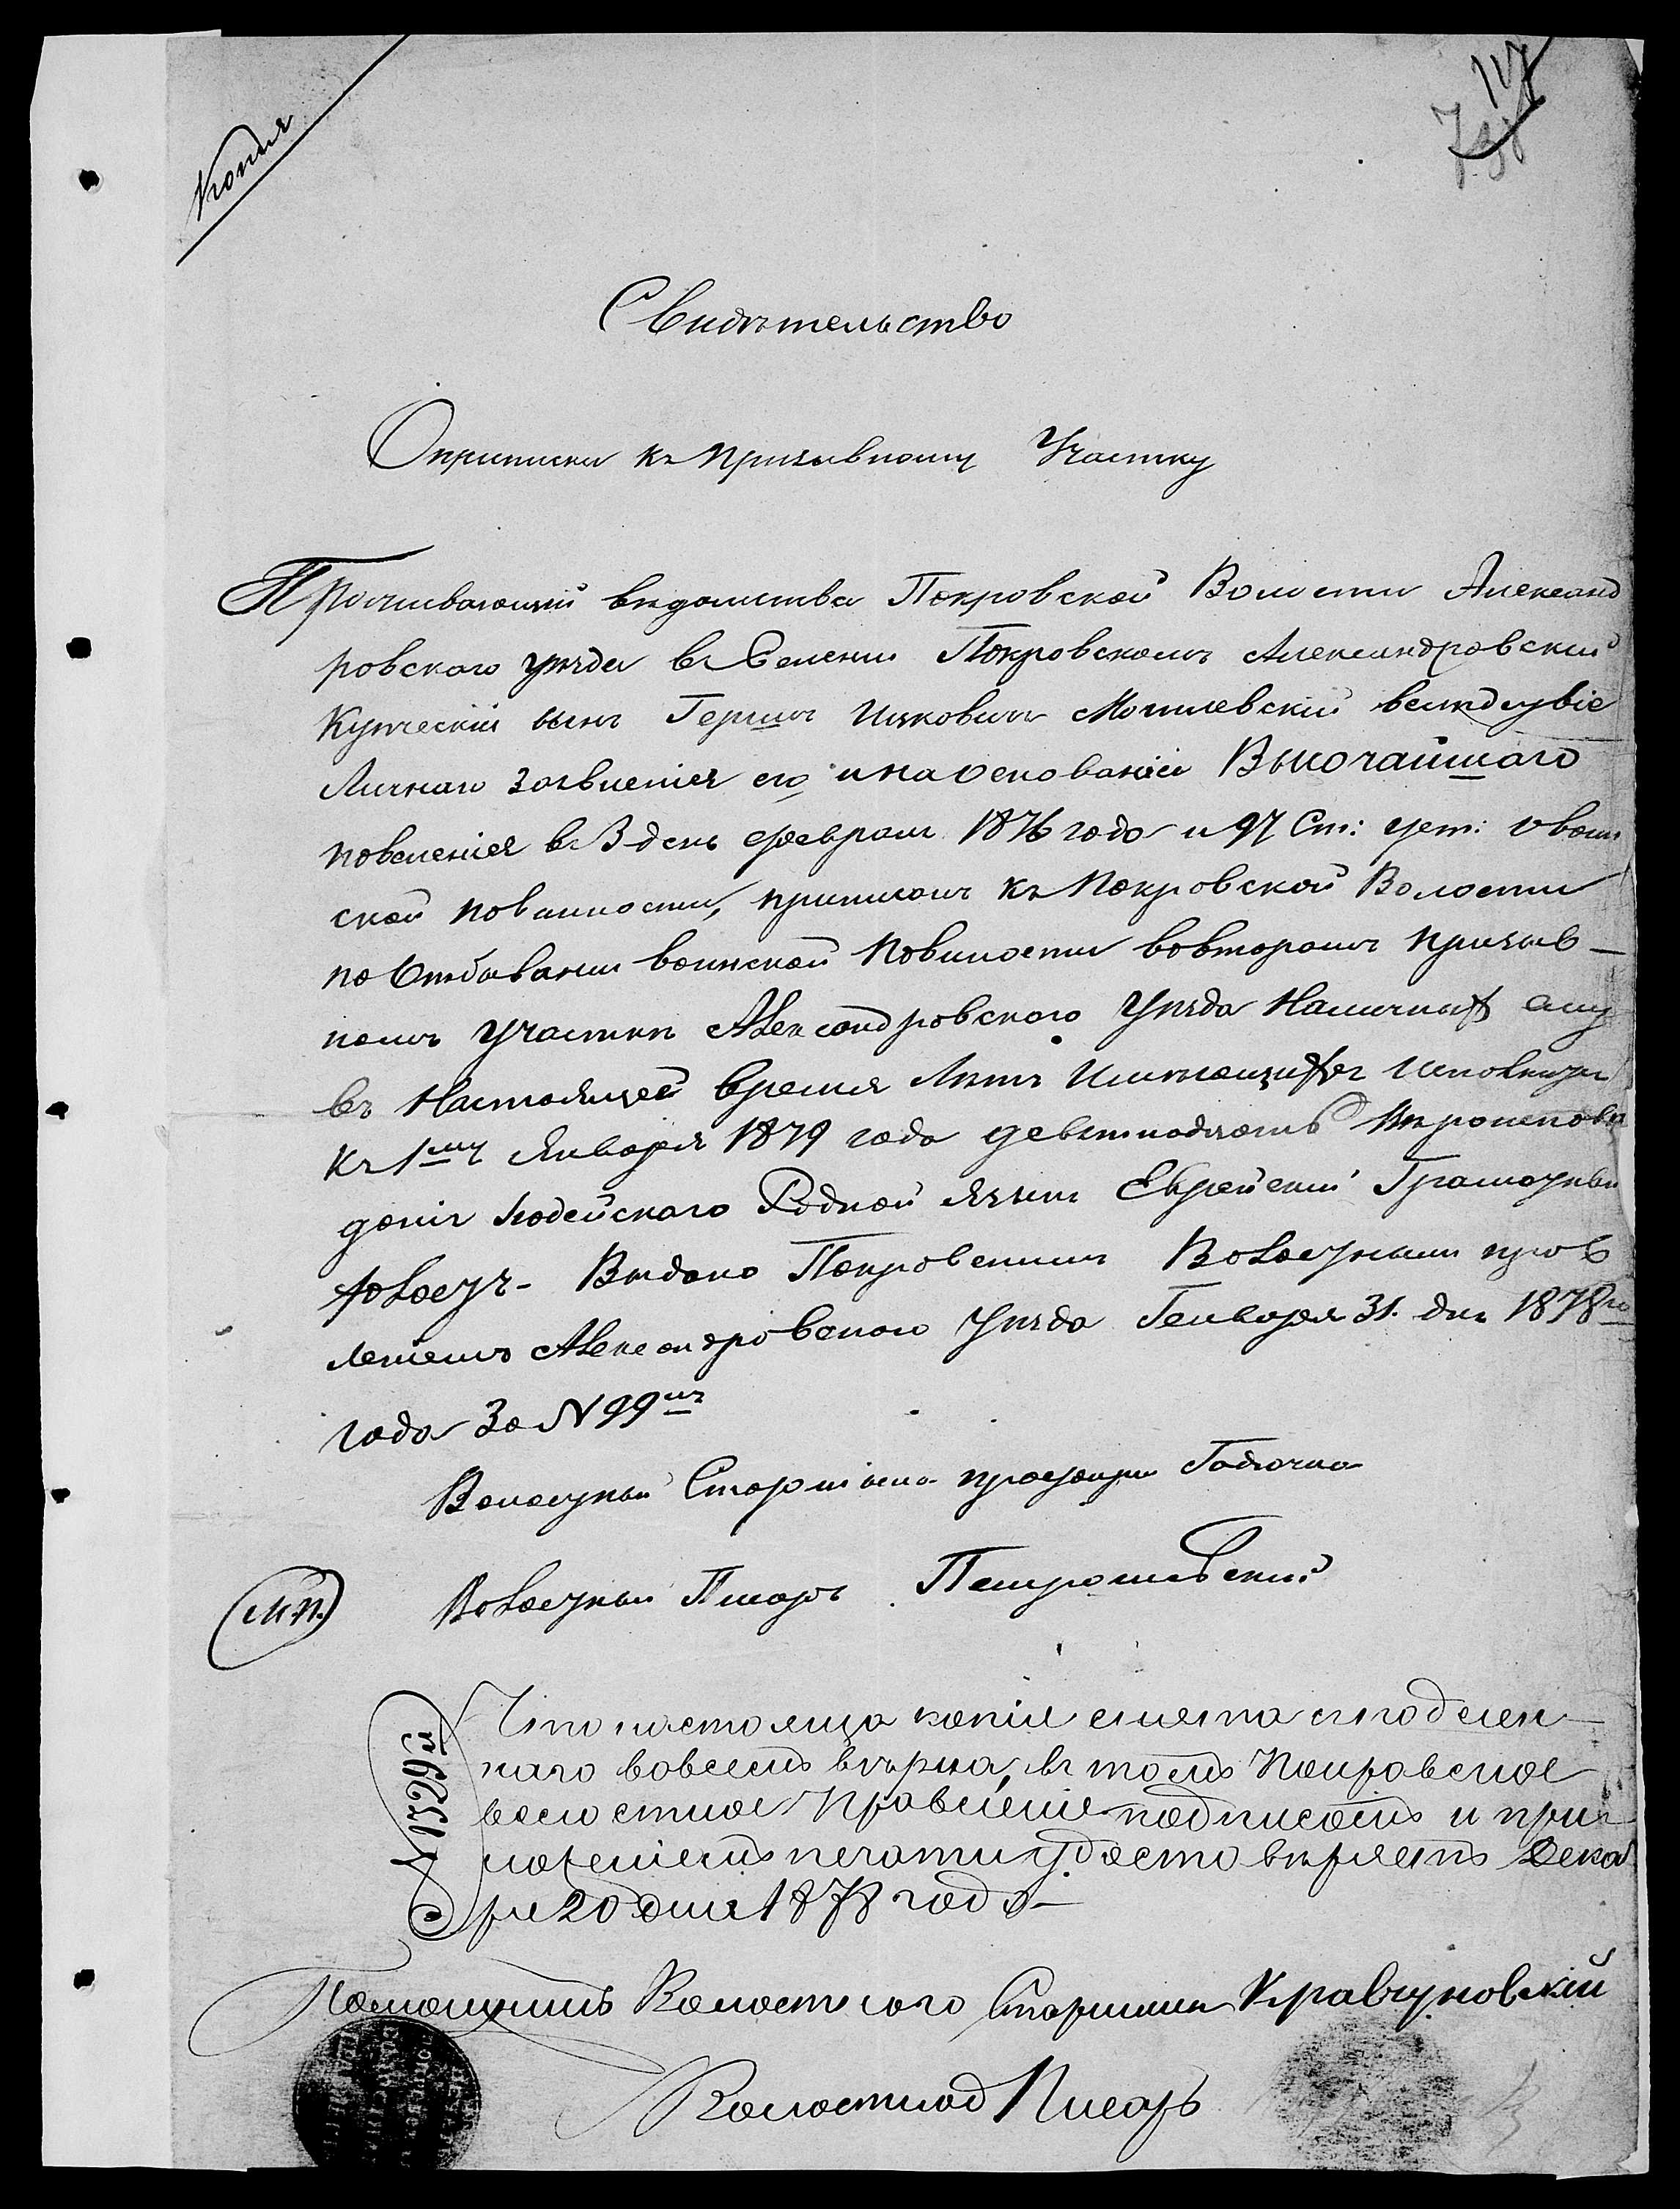 Копия
117
Свидѣтельство
Оприписки къ призывному Участку
Проживающій вѣдомства Покровской Волости Александ
ровского уѣзда въ Селеніи Покровскомъ Александровскій
Купческій сынъ Гершъ Ицковичъ Могилевскій вслѣдствіе
Личнаго заявленія его и на основаніи Высочайшаго
повеленія въ 3 день февраля 1876 года и 97 Ст: уст: о воин
ской повинности, приписанъ къ Покровской Волости
по Отбыванію воинской повиности вовторомъ призыв-
номъ участкѣ Александровского Уѣзда
въ Настоящее время Лѣтъ
къ 1му Января 1879 года девятнадцать Вѣроисповѣ
данія Іюдейскаго Родной Языкъ Еврейскій
Выдано Покровскимъ Волостнымъ прав
леніемъ Александровского Уѣзда Генваря 31. дня 1878го
года За № 99мъ
Волостной Старшина
(М.П.) Волостный Писарь
№ 1529й
Что настоящая копія снята съ подлен-
наго вовсемъ вѣрна, въ томъ Покровское
волостное Правленіе подписомъ и при
ложеніемъ печати удостовѣряетъ Декаб
ря 20 дня 1878 года
Помощникъ Волостного Старшины
Волостной Писарь